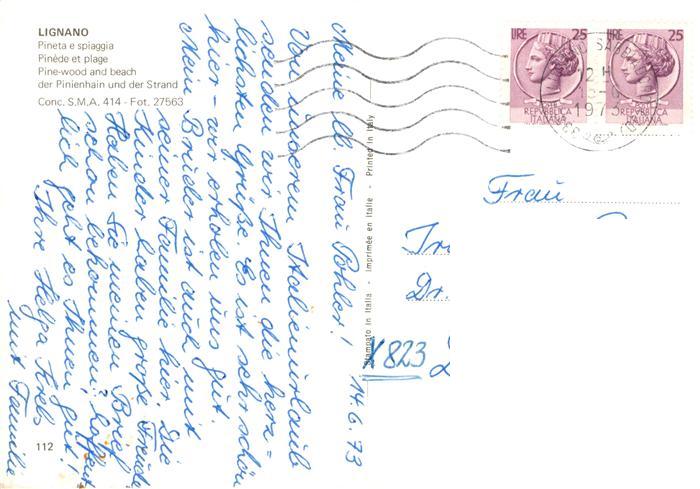 LIGNANO
Pineta e spiaggia
Pinède et plage
Pine-wood and beach
der Pinienhain und der Strand
Conc. S.M.A. 414 - Fot. 27563
14.6.73
Meine lb. Frau Pohler!
Von unserem Italienurlaub
senden wir Ihnen die herz=
lichsten Grüße. Es ist sehr schön
hier - wir erholen uns gut.
Mein Bruder ist auch mit
seiner Familie hier. Die
Kinder haben große Freude
Haben Sie meinen Brief
schon bekommen? Hoffent
lich geht es Ihnen gut!
Ihre Helga Krebs
mit Familie
112
Stampato in Italia - Imprimée en Italie - Printed in Italy
LIRE 25
REPUBBLICA
ITALIANA
LIRE 25
REPUBBLICA
ITALIANA
12 H
1973
Frau
Dr.
X 823